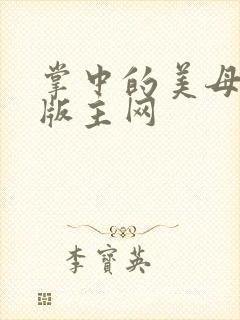 掌中的美母
版主网
李寶英